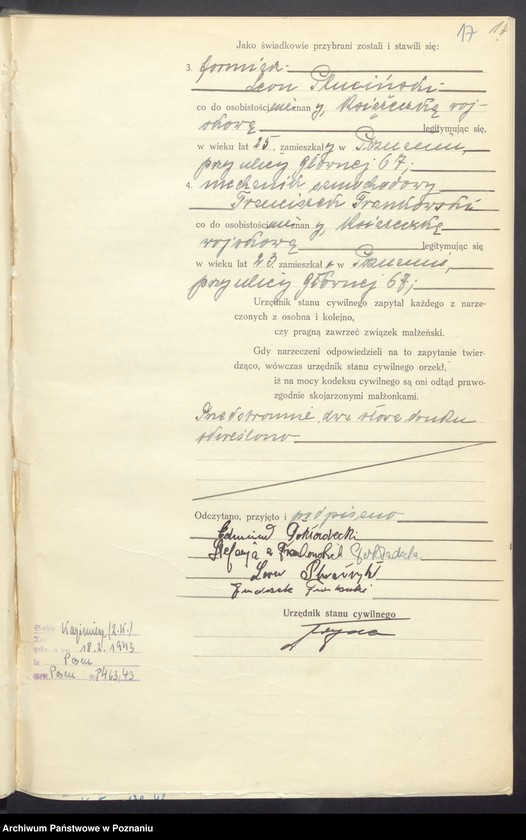 17
Jako świadkowie przybrani zostali i stawili się:
3. formierz
Leon Pluciński
co do osobistości znany, Książeczką woj-
skową legitymując się,
w wieku lat 25, zamieszkały w Poznaniu,
przy ulicy Głównej 67;
4. mechanik samochodowy
Franciszek Frankowski
co do osobistości znany, Książeczką
wojskową legitymując się
w wieku lat 23, zamieszkał w Poznaniu,
przy ulicy Głównej 67;
Urzędnik stanu cywilnego zapytał każdego z narze-
czonych z osobna i kolejno,
czy pragną zawrzeć związek małżeński.
Gdy narzeczeni odpowiedzieli na to zapytanie twier-
dząco, wówczas urzędnik stanu cywilnego orzekł,
iż na mocy kodeksu cywilnego są oni odtąd prawo-
zgodnie skojarzonymi małżonkami.
Przedstronnie dwa słowa druku
skreślono
Odczytano, przyjęto i podpisano
Edmund
Stefania z
Leon
Urzędnik stanu cywilnego
Kazimierz (2.K.)
18.2.1943
Posen
Posen P463/43
Archiwum Państwowe w Poznaniu